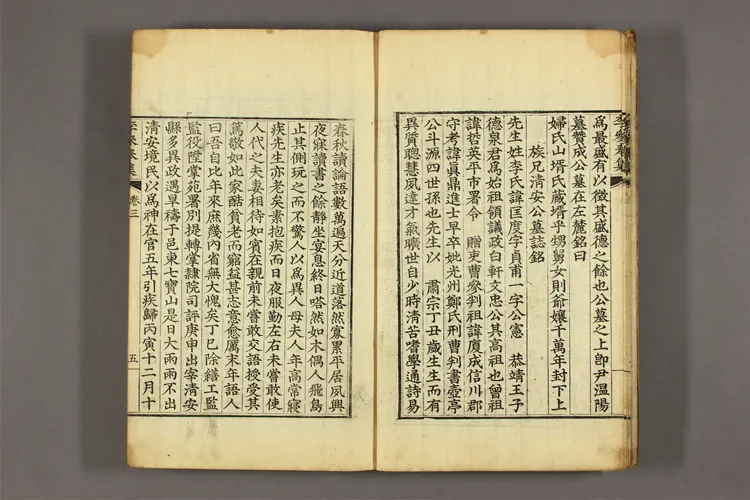 爲最盛有以徵其盛德之餘也公墓之上卽尹溫陽
墓贊成公墓在左麓銘曰
婦氏山壻氏藏壻乎甥舅女則爺孃千萬年封下上
族兄淸安公墓誌銘
先生姓李氏諱匡度字員甫一字公憲 恭靖王子
德泉君爲始祖領議政白軒文忠公其高祖也曾祖
諱哲英平市署令 贈吏曹參判祖諱廈成信川郡
守考諱眞鼎進士早卒妣光州鄭氏刑曹判書壺亭
公斗源四世孫也先生以 肅宗丁丑歲生生而有
異質聰慧夙達才氣曠世自少時淸苦嗜學通詩易
春秋讀論語數萬遍天分近道落然寡累平居夙興
夜寐讀書之餘靜坐宴息終日嗒然如木偶人飛鳥
止其側玩之而不驚人以爲異人母夫人年高常寢
疾先生亦老矣素抱疾而日夜服勤左右未嘗敢使
人代之夫妻相待如賓在親前未嘗敢交語授受其
篤敬如此家酷貧老而窮益甚志意愈厲末年語人
曰吾自比年來庶幾內省無大愧矣丁巳除繕工監
監役陞掌苑署別提轉掌隷院司評庚申出宰淸安
縣多異政遇旱禱于邑東七寶山是日大雨雨不出
淸安境民以爲神在官五年引疾歸丙寅十二月十
卷三 五